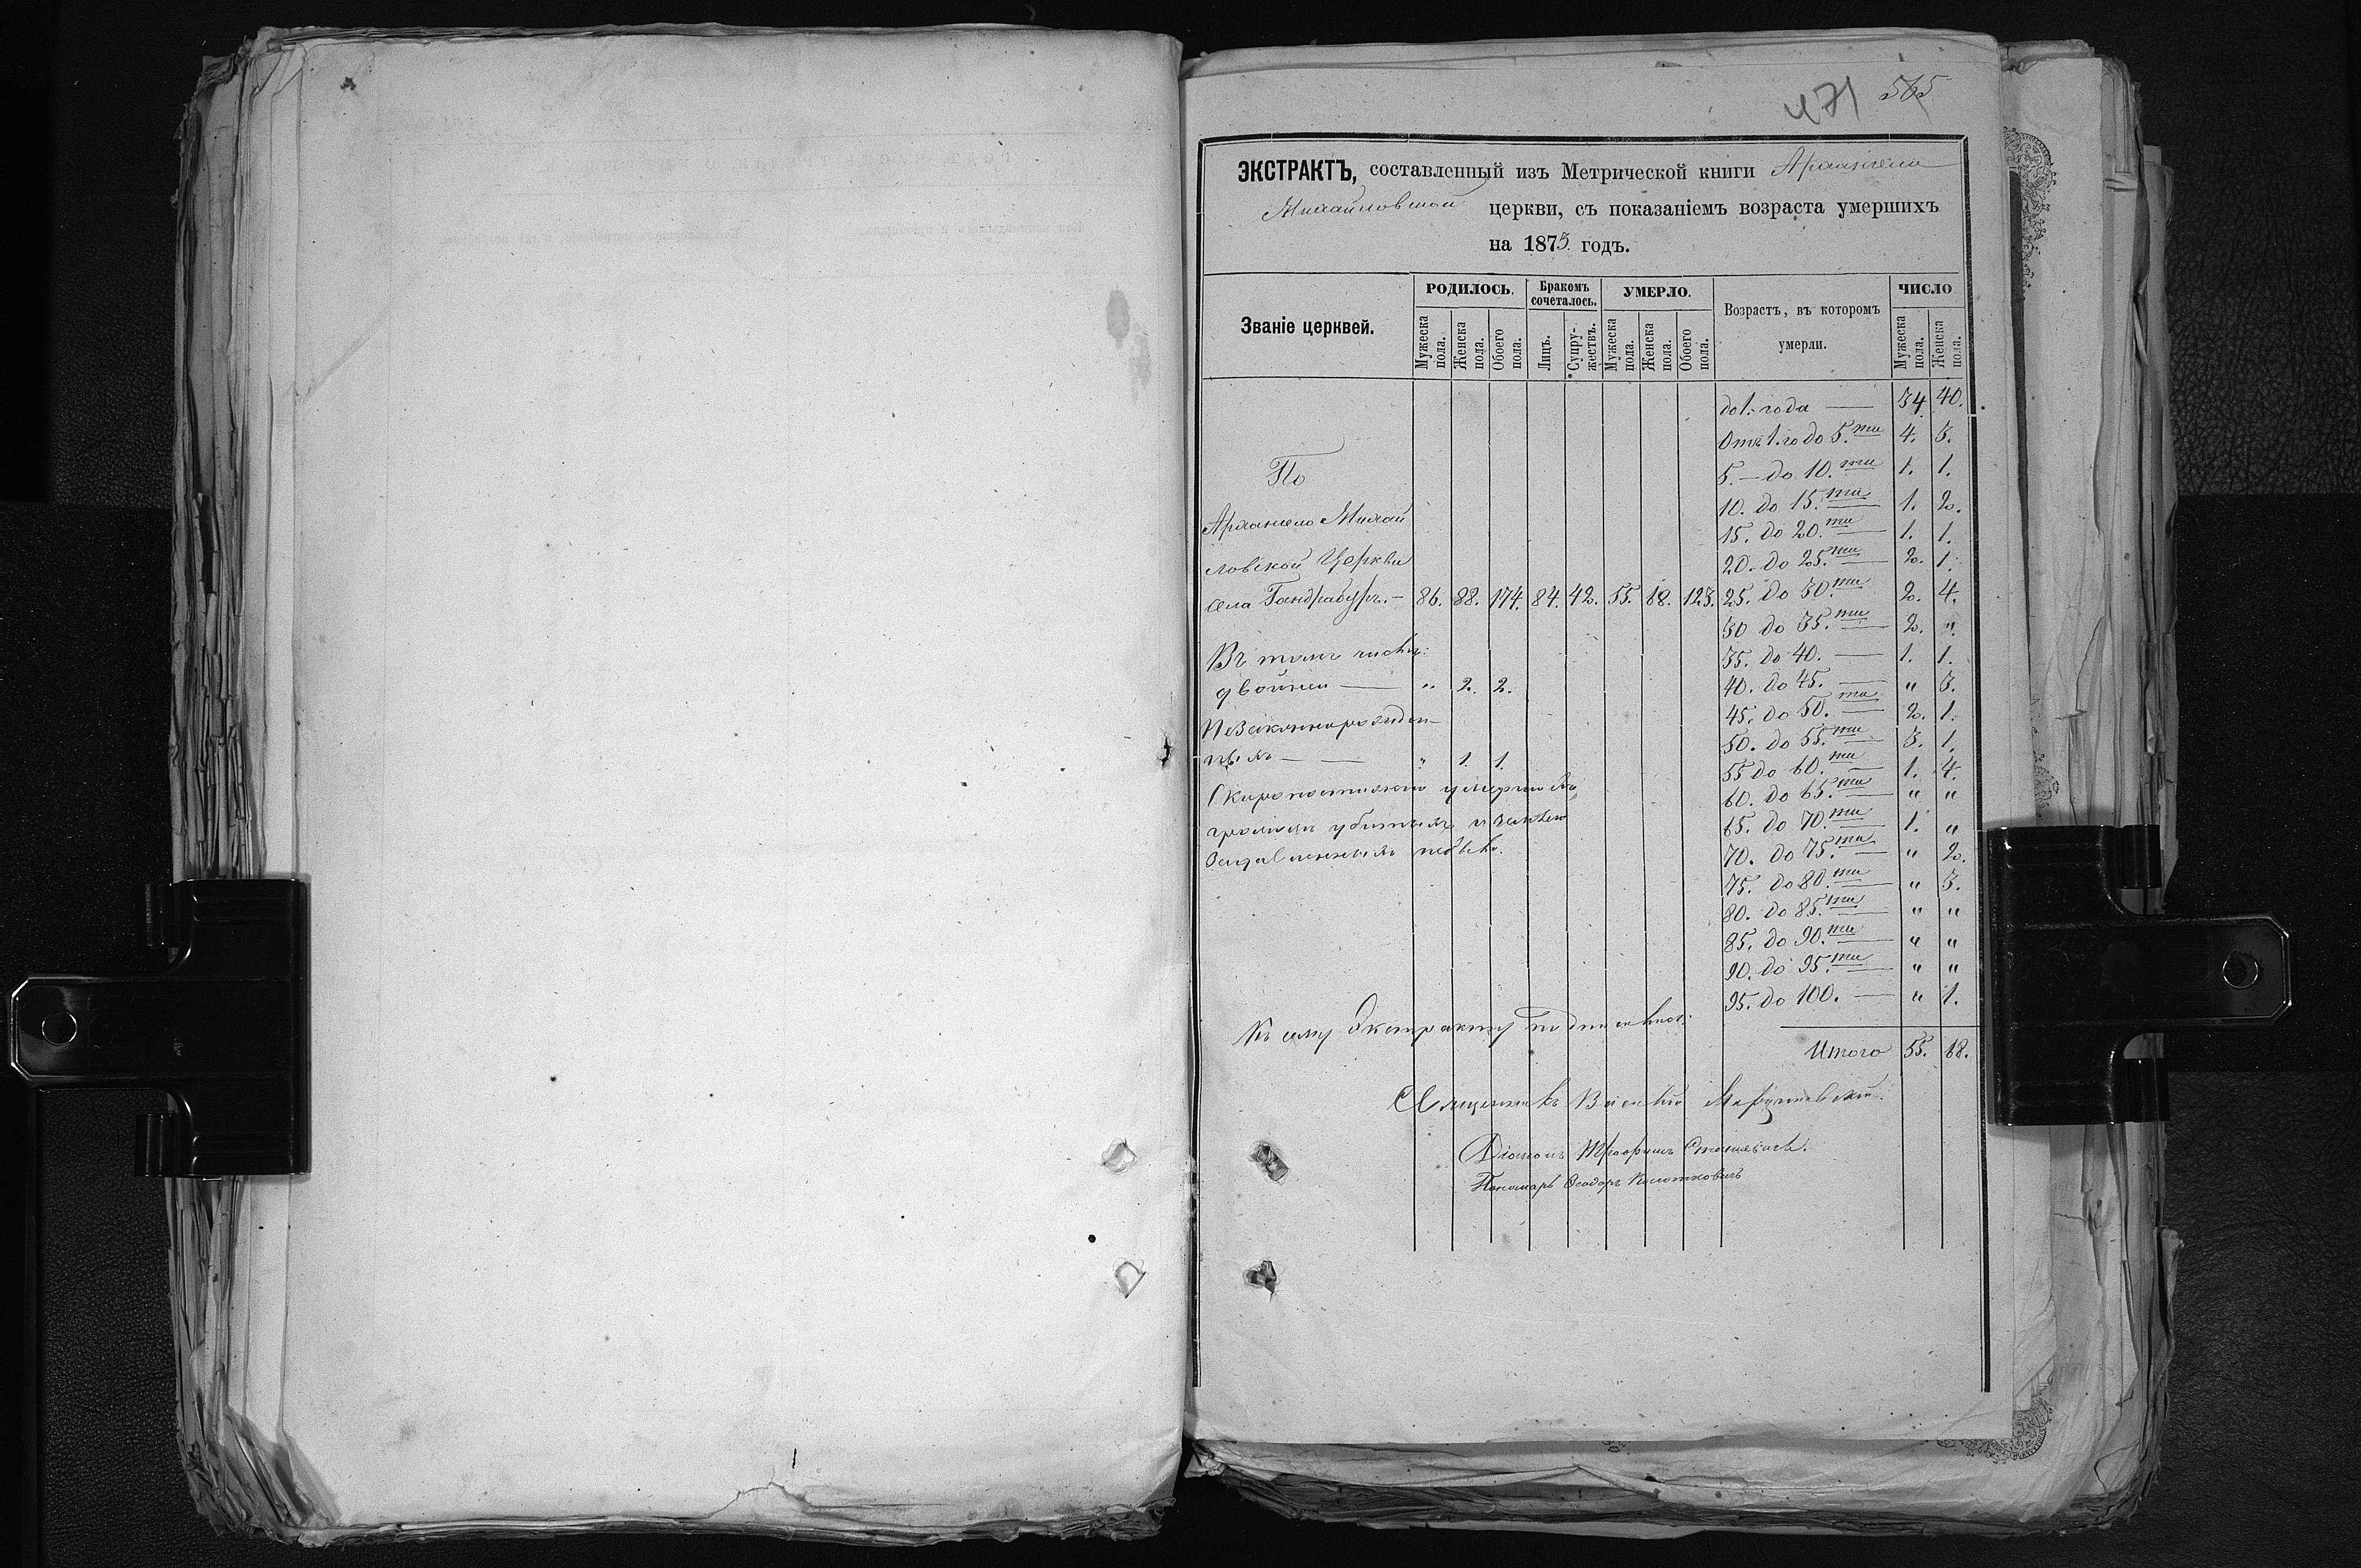 471 565
ЭКСТРАКТЪ, составленный изъ Метрической книги Архангело
Михайловской церкви, съ показаніемъ возраста умершихъ
на 1873 годъ.
Званіе церквей.
РОДИЛОСЬ. Бракомъ сочеталось. УМЕРЛО. Возрастъ, въ которомъ умерли. ЧИСЛО
Мужеска пола. Женска пола. Обоего пола. Лицъ. Супружествъ. Мужеска пола. Женска пола. Обоего пола. Мужеска пола. Женска пола.
до 1. года — 34. 40.
Отъ 1. го до 5.ти 4. 3.
По 5. — до 10.ти 1. 1.
10. до 15.ти 1. 2.
Архангело Михай 15. до 20.ти 1. 1.
ловской Церкви 20. до 25.ти 2. 1.
села Гандрабуръ. — 86. 88. 174. 84. 42. 55. 68. 123. 25. до 30.ти 2. 4.
30 до 35.ти 2. "
Въ томъ числѣ: 35. до 40. — 1. 1.
двойни — " 2. 2. 40. до 45. — " 3.
Незаконнорожден- 45. до 50.ти 2. 1.
ныхъ — — " 1. 1. 50. до 55.ти 3. 1.
55 до 60.ти 1. 4.
Скоропостижно умерши 60. до 65.ти " "
громомъ убитыхъ и 65. до 70.ти 1. "
70. до 75.ти " 2.
75. до 80.ти " 3.
80. до 85.ти " "
85. до 90.ти " "
90. до 95.ти " "
95. до 100. — " 1.
Къ сему Экстракту подписались:
Итого 55. 68.
Священникъ Василій
Діаконъ Трофимъ
Пономарь Феодоръ